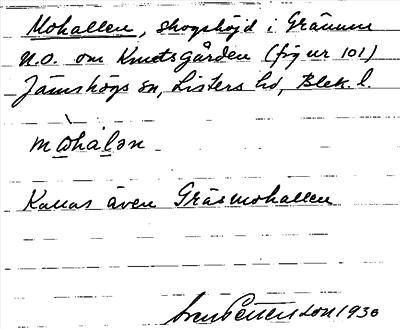 Mohallen, skogshöjd i Gränum
N.O. om Knutsgården (fig nr 101)
Jämshögs sn, Listers hd, Blek. l.
mωhàlən
Kallas även Gräsmohallen
Sven Pettersson 1930